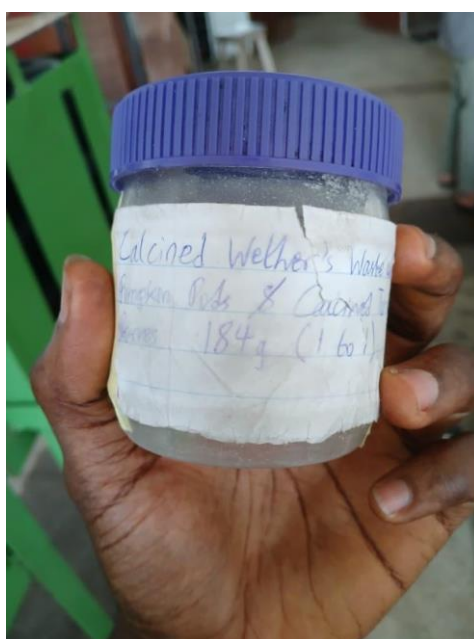 Calcined Wether's Waste
Pumpkin Pods & Calcined
184g (1 to 1)